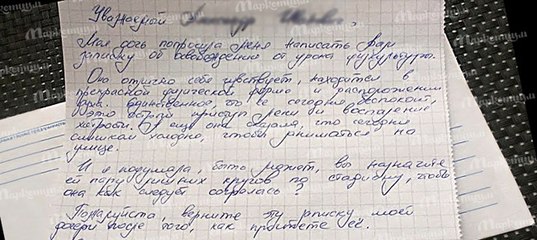 Уважаемый
Моя дочь попросила меня написать Вам
записку об освобождении от урока физкультуры.
Она отлично себя чувствует, находится в
прекрасной физической форме и расположении
духа. Единственное, что ее сегодня беспокоит,
это острый приступ лени и воспаление
хитрости. А еще она сказала, что сегодня
слишком холодно, чтобы заниматься на
улице.
И я подумала, быть может, вы назначите
ей пару лишних кругов по стадиону, чтобы
она как следует согрелась?
Пожалуйста, верните эту записку моей
дочери после того, как прочтете её.